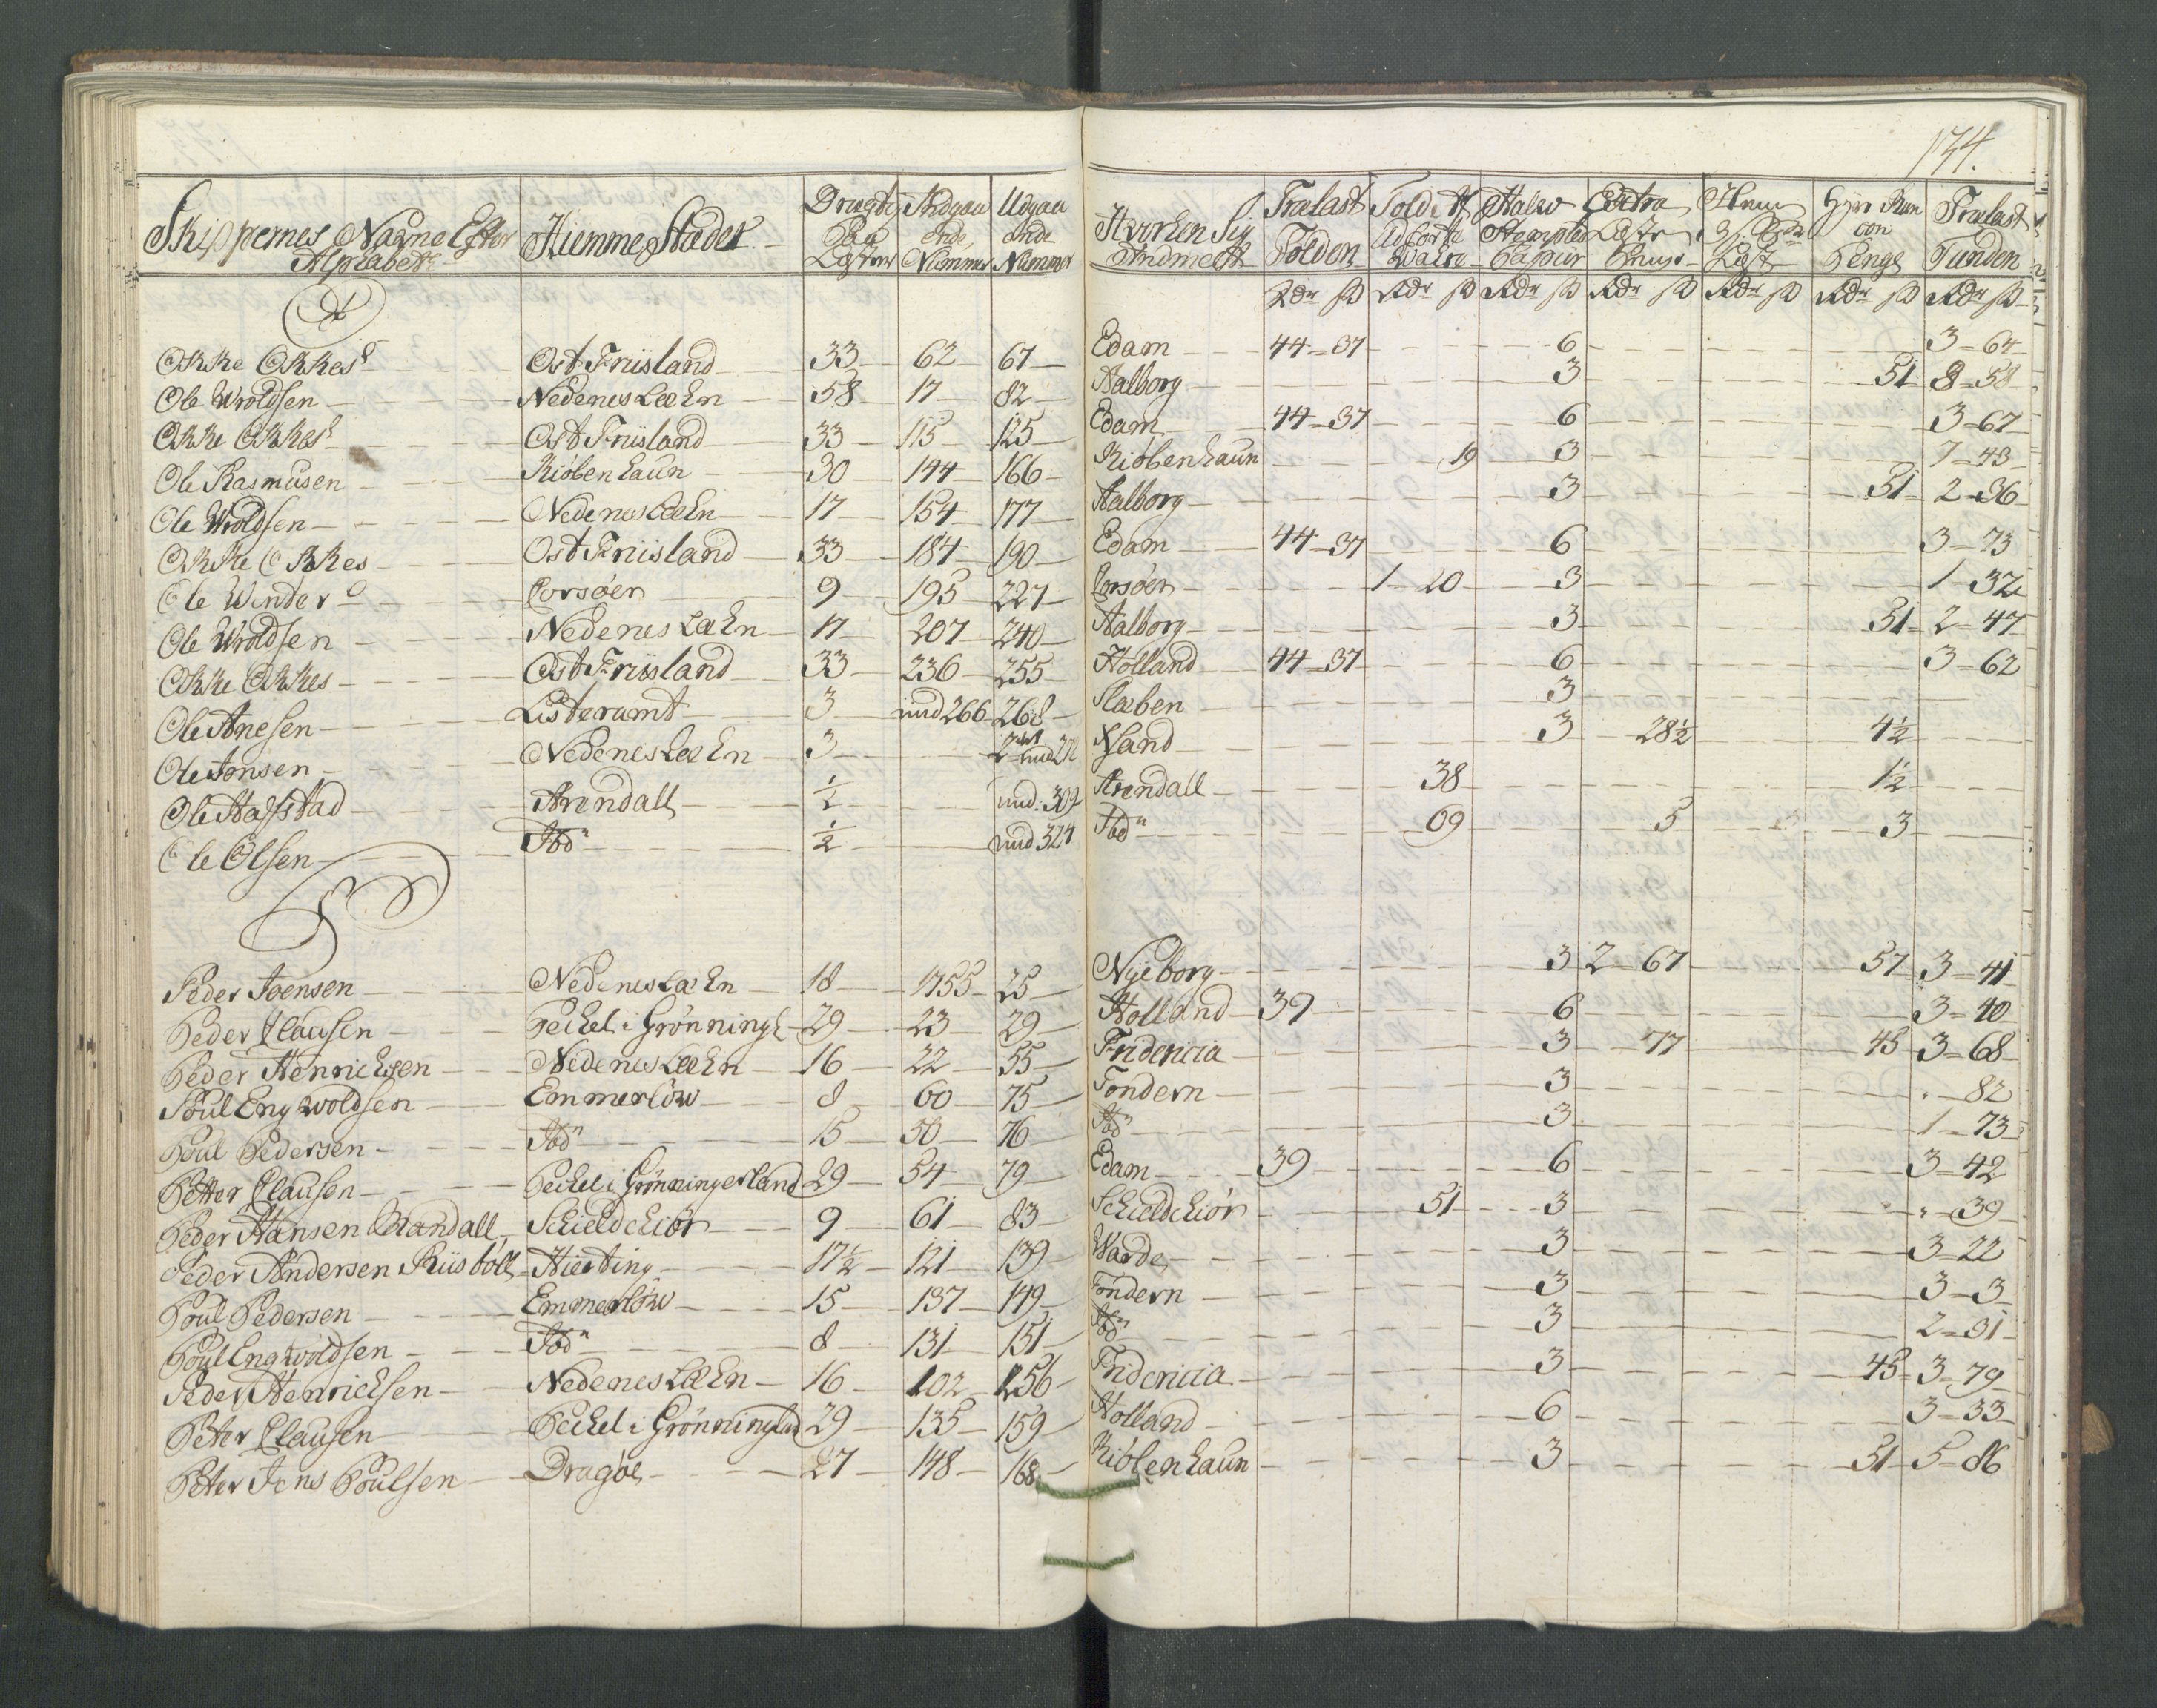 174.
Skippernes Nafne Efter Alphabett
Hiemme Stæder
Drægtig Paa Læster
Indgaa ende Nummer
Udgaa ende Nummer
Hvorhen Sig Indmeldt
Trælast Tolden
Told Udførte Wahre
Halw Stemplet Pappiir
Extra
Trælast Tienden
Rdr ß Rdr ß Rdr ß Rdr ß Rdr ß Rdr ß Rdr ß
O
Okke Okkes Ost Friisland 33 62 67 Edam 44 - 37 6 3 - 64
Ole Wroldsen Nedenes Læhn 58 17 82 Aalborg 3 51 8 - 58
Okke Okkes Ost Friisland 33 115 125 Edam 44 - 37 6 3 - 67
Ole Rasmusen Kiøbenhaun 30 144 166 Kiøbenhaun 19 3 7 - 43
Ole Wroldsen Nedenes Læhn 17 154 177 Aalborg 3 51 2 - 36
Okke Okkes Ost Friisland 33 184 190 Edam 44 - 37 6 3 - 73
Ole Winder Corsøer 9 195 227 Corsøer 1 - 20 3 1 - 32
Ole Wroldsen Nedenes Læhn 17 207 240 Aalborg 3 51 2 - 47
Okke Okkes Ost Friisland 33 236 255 Holland 44 - 37 6 3 - 62
Ole Anesen Listeramt 3 und 266 268 Staben 3
Ole Jonsen Nedenes Læhn 3 3 28½ 4½
Ole Hafstad Arendall ½ und. 309 Arendall 38 1½
Ole Olsen Ibdn ½ und 324 Ibdn 69 5 3
P
Peder Joensen Nedenes Læhn 18 1755 25 Nyeborg 3 2 - 67 57 3 - 41
Peder Clausen Pechel i Grønningl 29 23 29 Holland 39 6 3 - 40
Peder Henrichsen Nedenes Læhn 16 22 55 Fridericia 3 77 45 3 - 68
Poul Engwoldsen Emmerlöw 8 60 75 Tondern 3 - 82
Poul Pedersen Ibdn 15 50 76 Ibdn 3 1 - 73
Petter Clausen Pechel i Grønningerland 29 54 79 Edam 39 6 3 - 42
Peder Hansen Randall Schieldchiør 9 61 83 Schieldchiør 51 3 - 39
Peder Andersen Riisböll Hierting 17½ 121 139 Warde 3 3 - 22
Poul Pedersen Emmerlöw 15 137 149 Tondern 3 3 - 3
Poul Engwoldsen Ibdn 8 131 151 Ibdn 3 2 - 31
Peder Henrichsen Nedenes Læhn 16 102 156 Fridericia 3 45 3 - 79
Peter Clausen Pechel i Grønninglan 29 135 159 Holland 6 3 - 33
Peter Jens Poulsen Dragøe 27 148 168 Kiøbenhaun 3 51 5 - 86